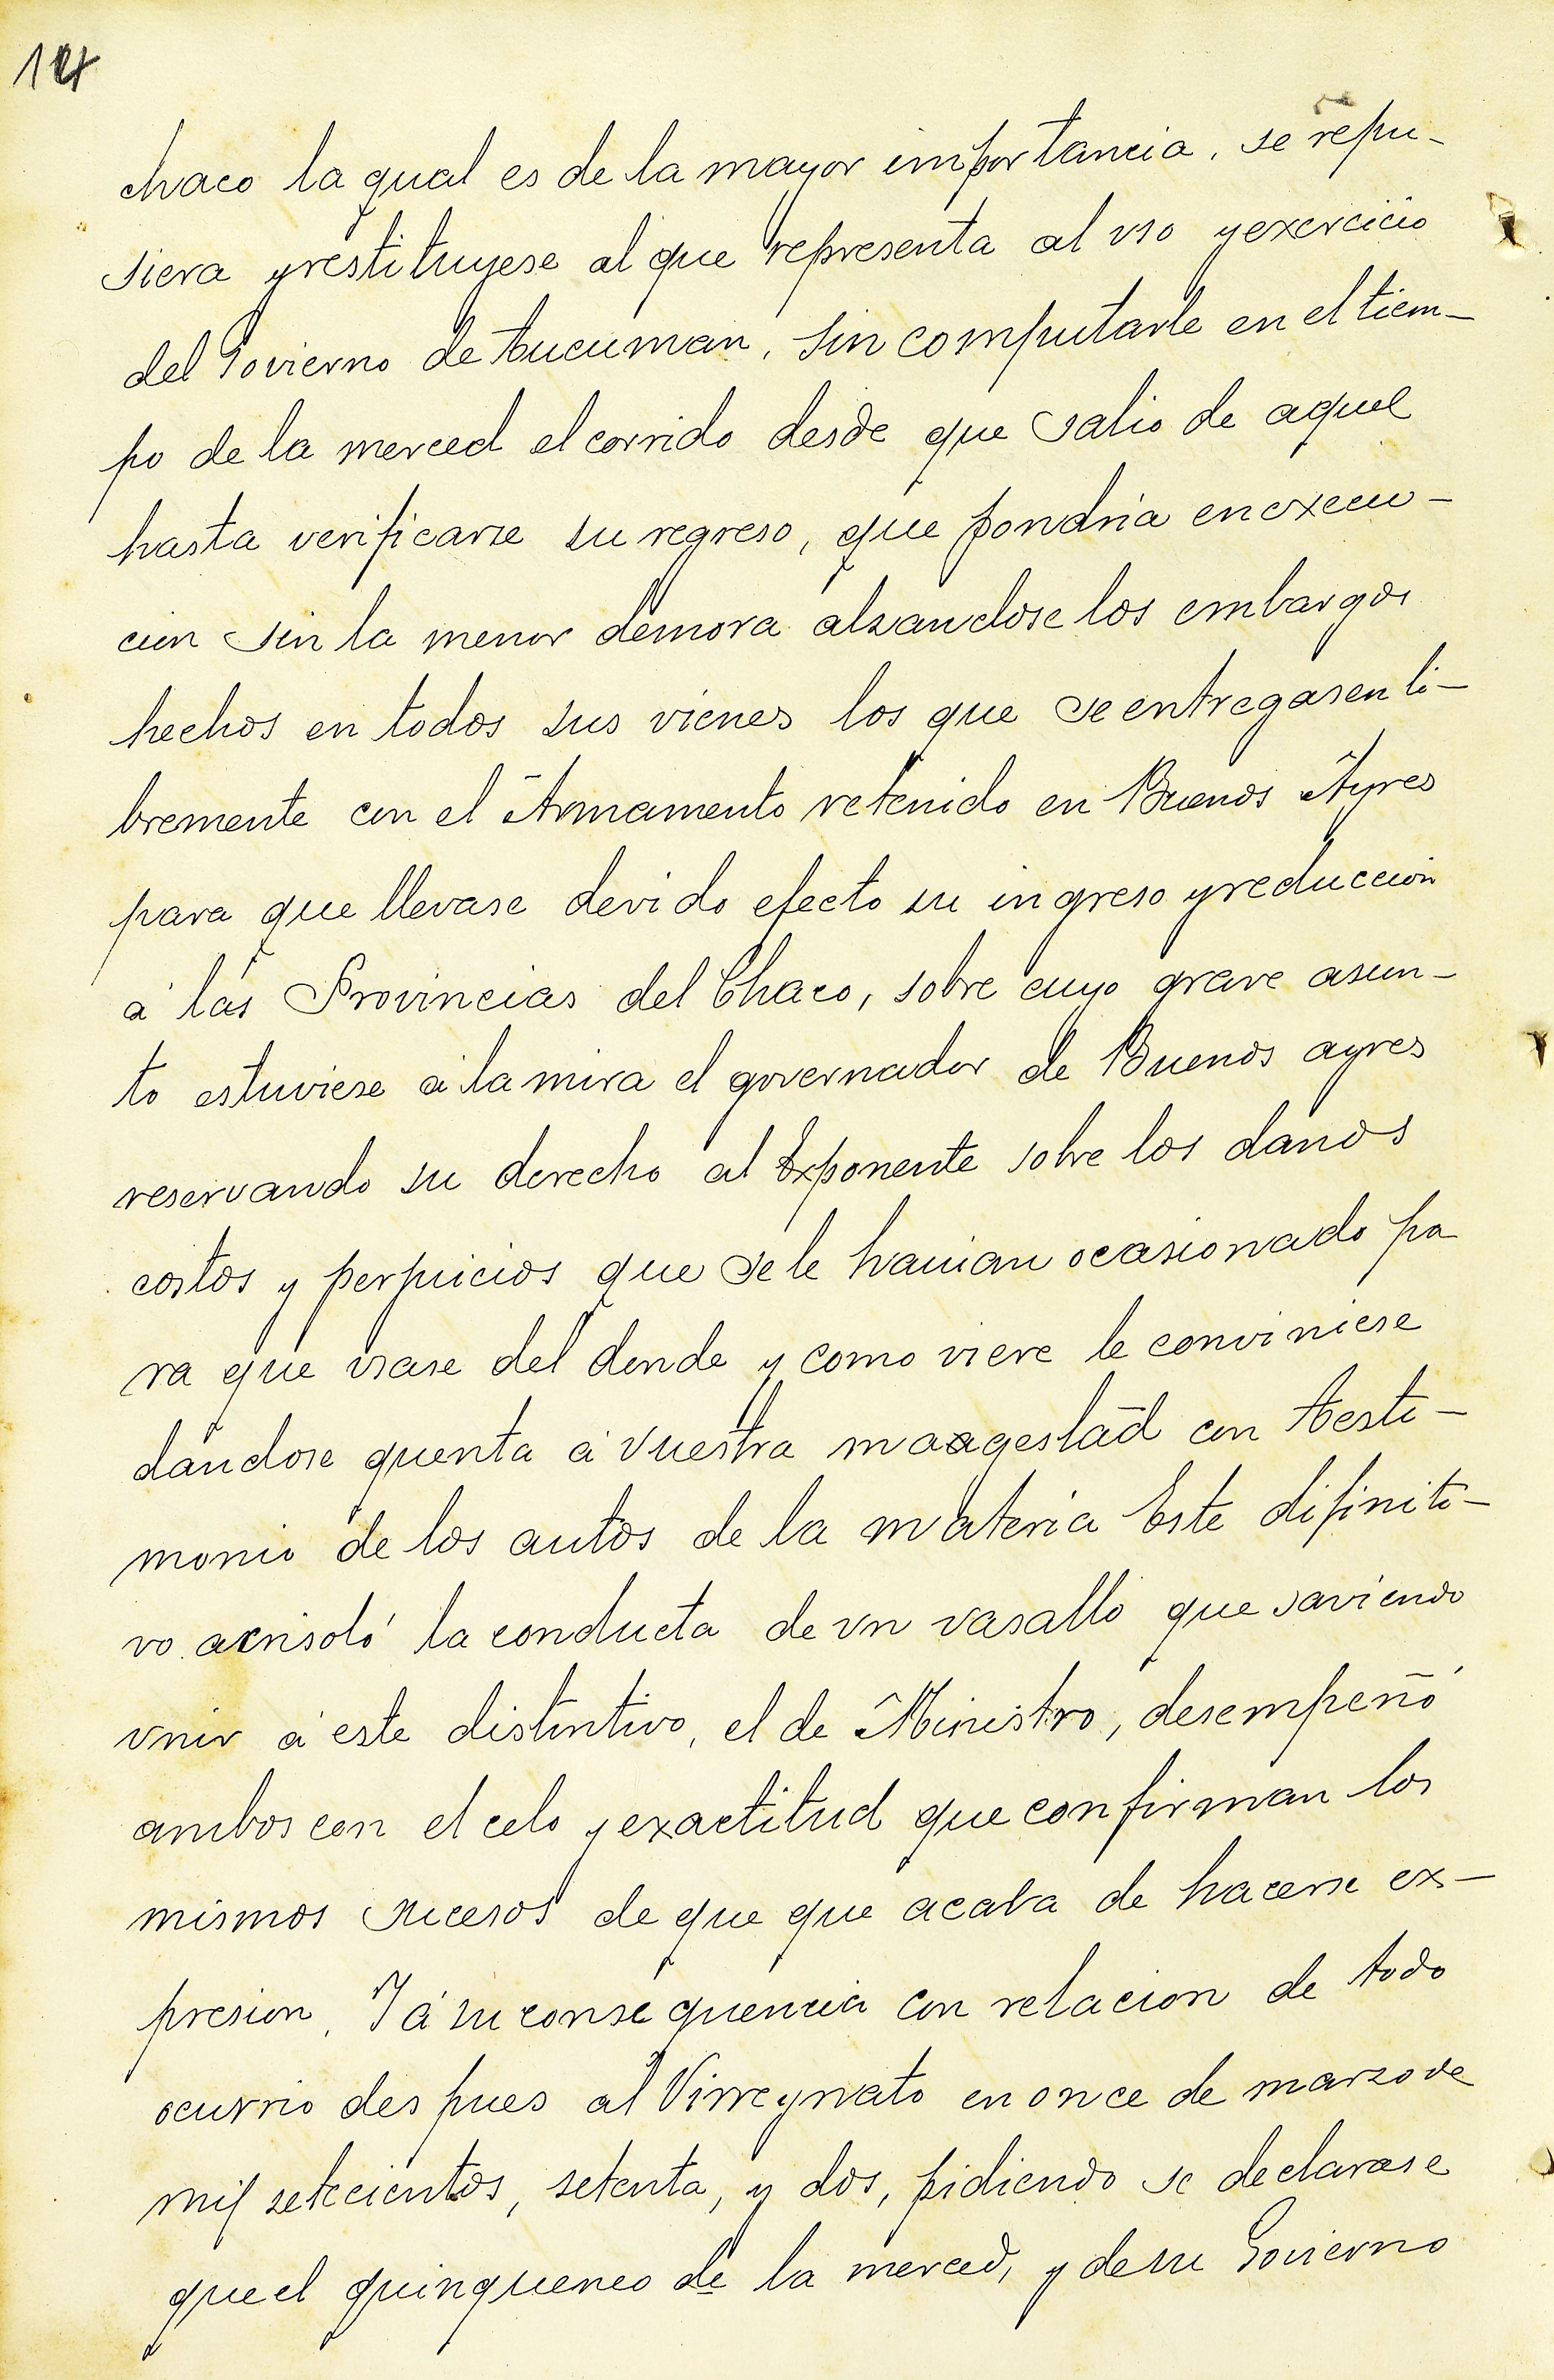 14
chaco la qual es de la mayor importancia, se repu-
siera y restituyese al que representa al vso y exercicio
del Govierno de tucuman, sin computarle en el tiem-
po de la merced el corrido desde que salio de aquel
hasta verificarse su regreso, que pondria en execu-
cion sin la menor demora alzandose los embargos
hechos en todos sus vienes los que se entregasen li-
bremente con el Armamento retenido en Buenos Ayres
para que llevase devido efecto su ingreso y reduccion
á las Provincias del Chaco, sobre cuyo grave asun-
to estuviese á la mira el governador de Buenos ayres
reservando su derecho al Exponente sobre los danos
costos y perjuicios que se le havian ocasionado pa
ra que vsase del donde y como viere le conviniese
dandose quenta á Vuestra maagestad con testi-
monio de los autos de la materia Este difiniti-
vo acrisoló la conducta de vn vasallo que saviendo
vnir á este distintivo, el de Ministro, desempeñó
ambos con el celo y exactitud que confirman los
mismos sucesos de que que acaba de hacerse ex-
presion. Y á su consequencia con relacion de todo
ocurrio despues al Virreynato en once de marzo de
mil setecientos, setenta, y dos, pidiendo se declarase
que el quinqueneo de la merced, y de su Govierno